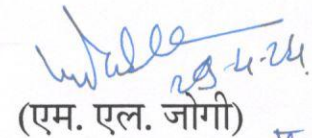 29-4-24
(एम. एल. जोगी)